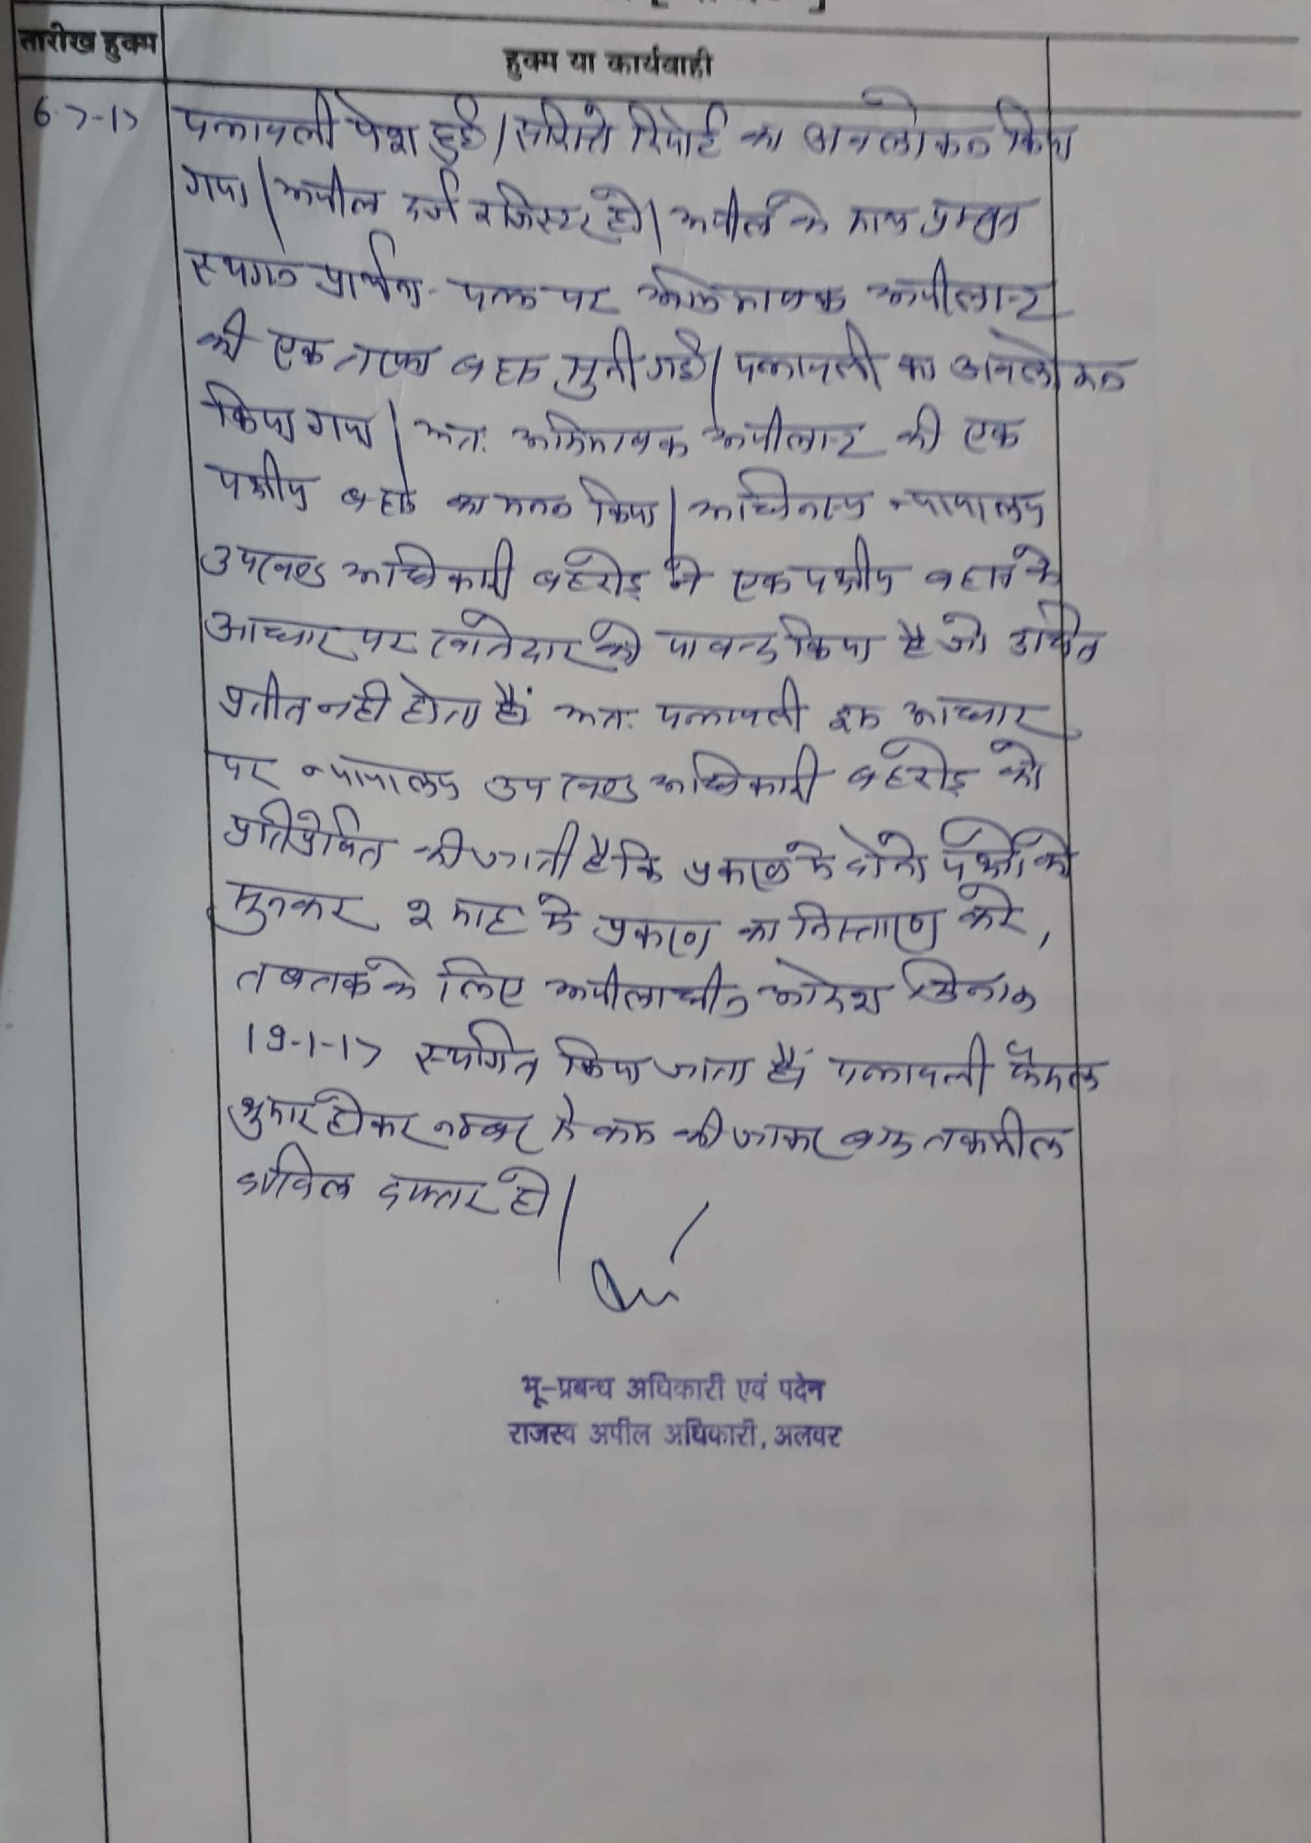 तारीख हुक्म
हुक्म या कार्यवाही
6-7-17
पत्रावली पेश हुई। सरिस्ते रिपोर्ट का अवलोकन किया
गया। अपील दर्ज रजिस्टर हो। अपील के साथ प्रस्तुत
स्थगन प्रार्थना-पत्र पर अभिभाषक अपीलान्ट
की एक तरफा बहस सुनी गई। पत्रावली का अवलोकन
किया गया। अतः अभिभाषक अपीलान्ट की एक
पक्षीय बहस का मनन किया। अधिनस्थ न्यायालय
उपखण्ड अधिकारी बहरोड़ ने एक पक्षीय बहस के
आधार पर खातेदार को पाबन्द किया है जो उचित
प्रतीत नही होता है। अतः पत्रावली इस आधार
पर न्यायालय उपखण्ड अधिकारी बहरोड़ को
प्रतिप्रेषित की जाती है कि प्रकरण मे दोनो पक्षो को
सुनकर २ माह मे प्रकरण का निस्तारण करे,
तब तक के लिए अपीलाधीन आदेश दिनांक
19-1-17 स्थगित किया जाता है। पत्रावली फैसल
शुमार होकर नम्बर से कम की जाकर बाद तकमील
दाखिल दफ्तर हो।
भू-प्रबन्ध अधिकारी एवं पदेन
राजस्व अपील अधिकारी, अलवर